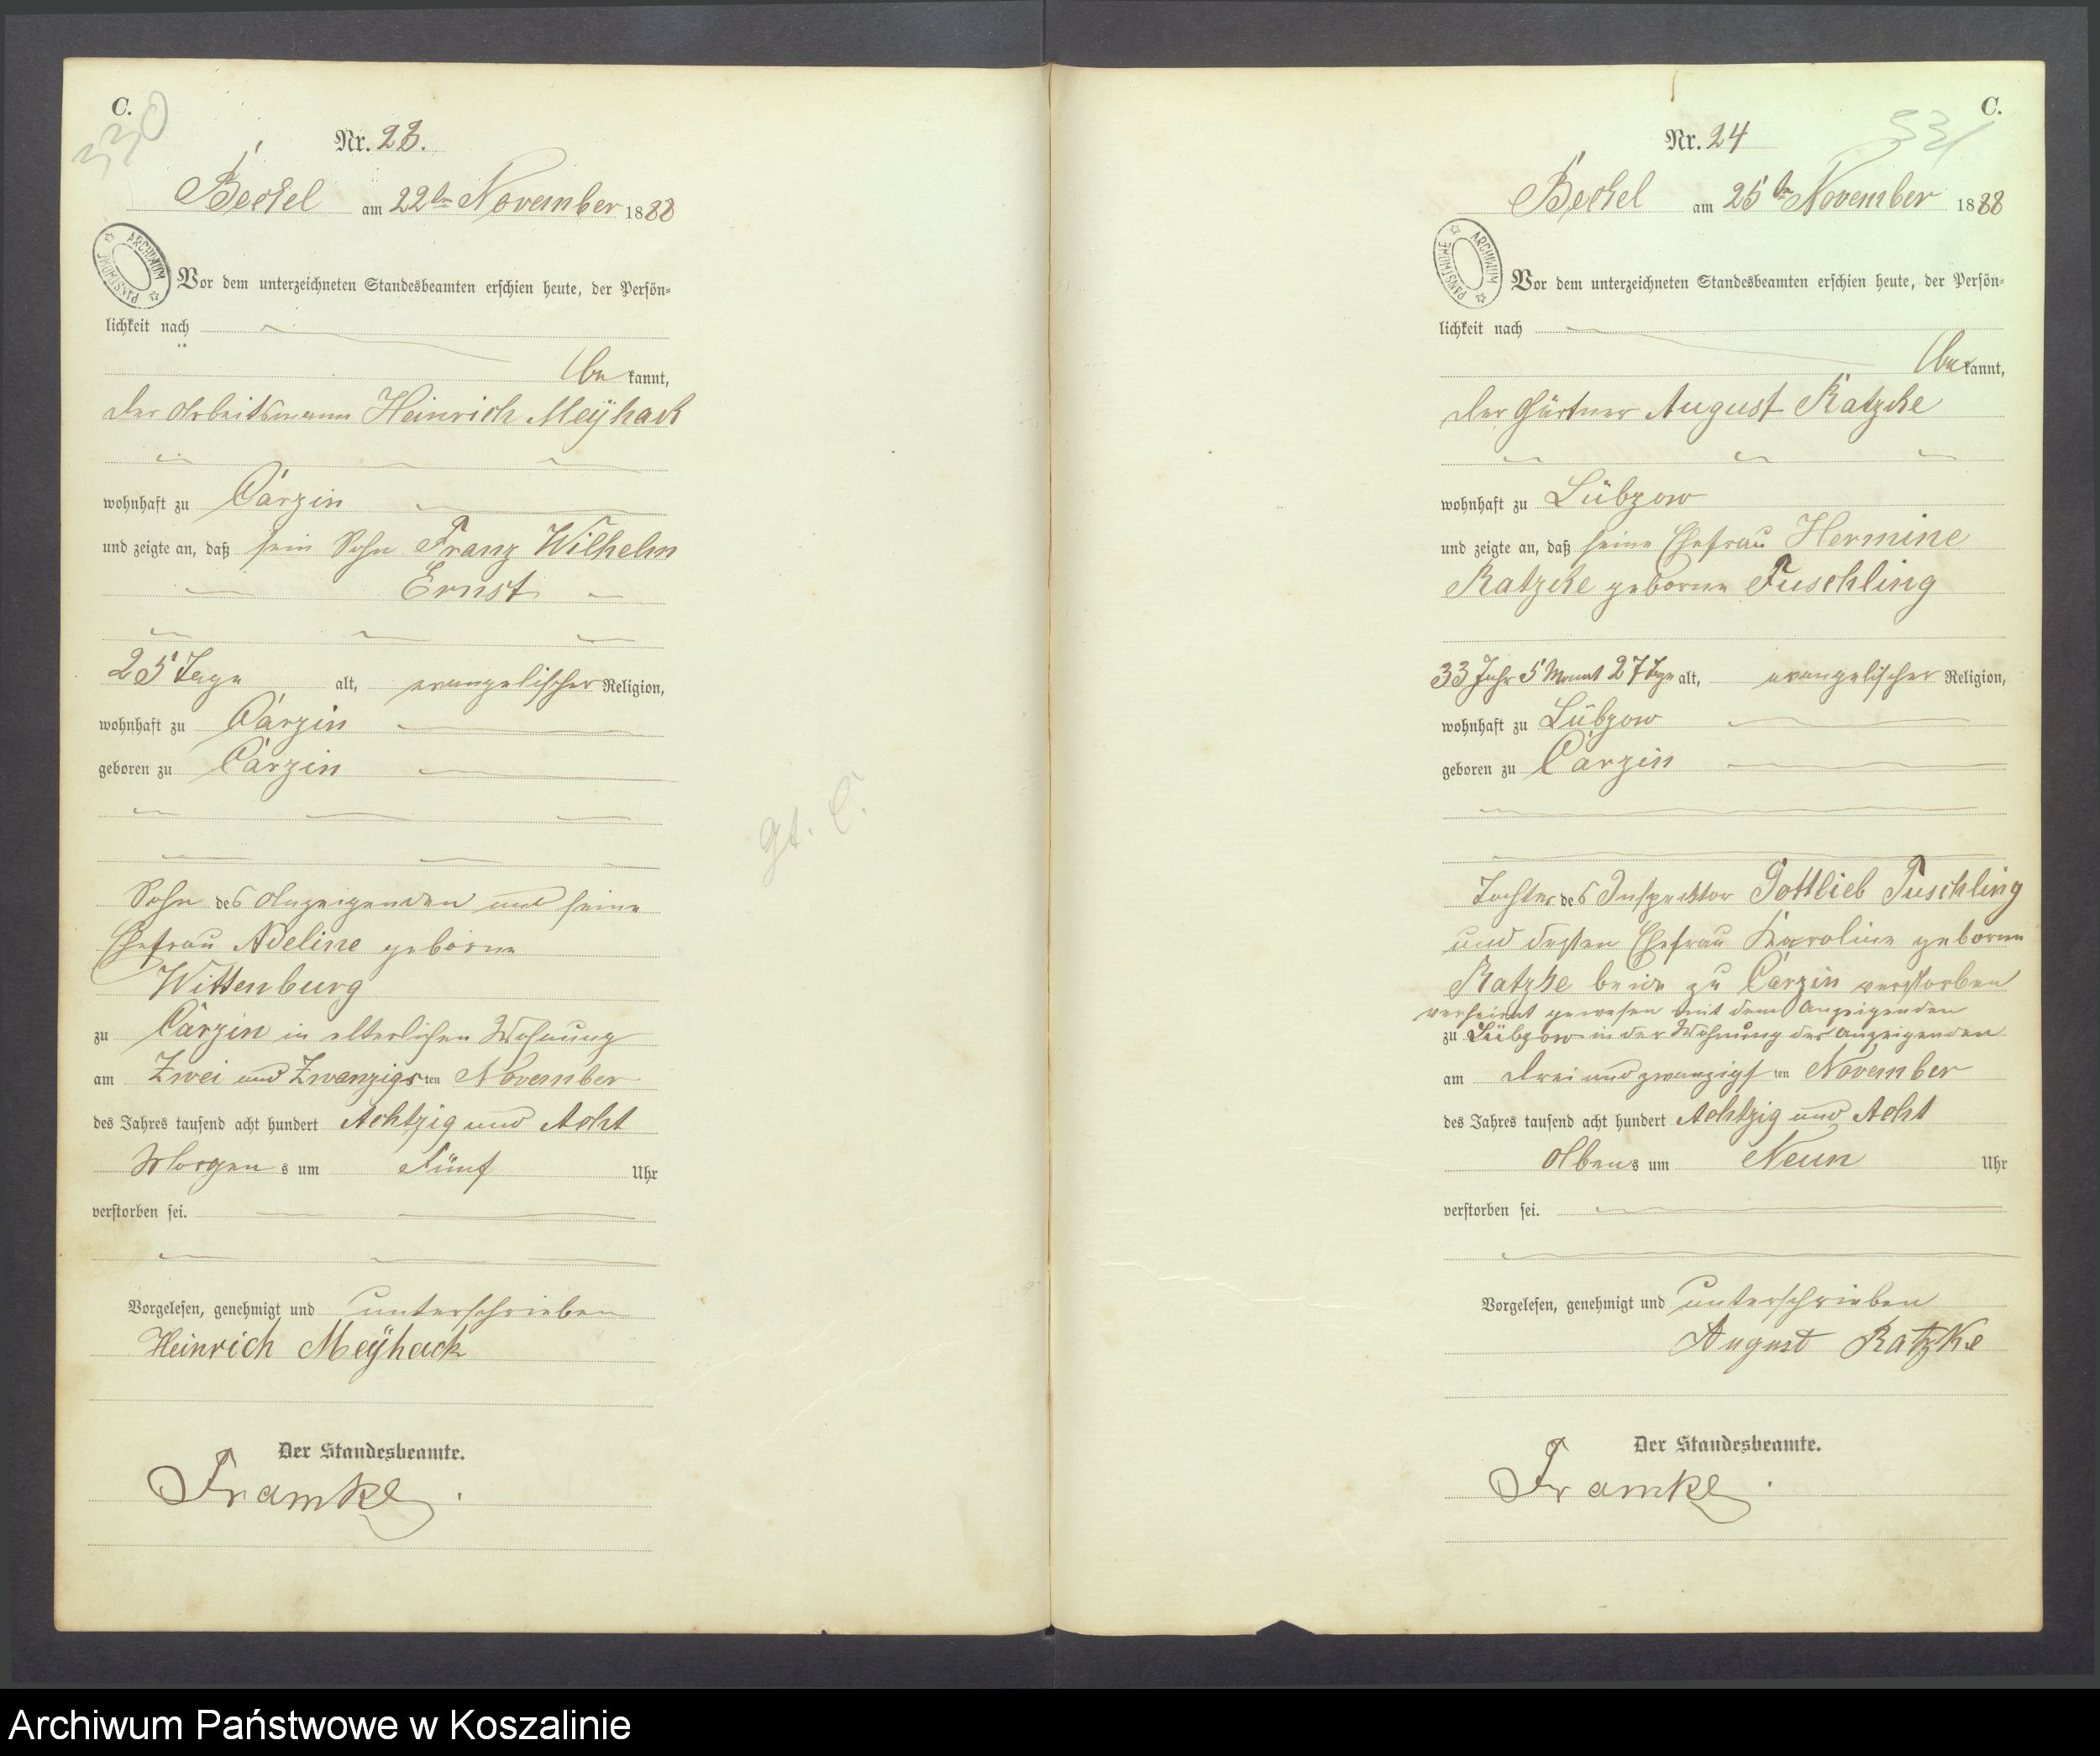 C.
330
Nr. 23.
Beckel am 22ten November 1888
ARCHIWUM PAŃSTWOWE
Vor dem unterzeichneten Standesbeamten erschien heute, der Persön-
lichkeit nach
bekannt,
der Arbeitsmann Heinrich Meÿhack
wohnhaft zu Carzin
und zeigte an, daß sein Sohn Franz Wilhelm
Ernst
25 Tage alt, evangelischer Religion,
wohnhaft zu Carzin
geboren zu Carzin
Sohn des Anzeigenden und seine
Ehefrau Adeline geborne
Wittenburg
zu Carzin in elterlichen Wohnung
am Zwei und Zwanzigsten November
des Jahres tausend acht hundert Achtzig und Acht
Morgens um Fünf Uhr
verstorben sei.
Vorgelesen, genehmigt und unterschrieben
Heinrich Meÿhack
Der Standesbeamte.
Framke.
gt. C.
C.
331
Nr. 24
Beckel am 25ten November 1888
ARCHIWUM PAŃSTWOWE
Vor dem unterzeichneten Standesbeamten erschien heute, der Persön-
lichkeit nach
bekannt,
der Gärtner August Ratzcke
wohnhaft zu Lübzow
und zeigte an, daß seine Ehefrau Hermine
Ratzcke geborne Tuschling
33 Jahr 5 Monat 27 Tage alt, evangelischer Religion,
wohnhaft zu Lübzow
geboren zu Carzin
Tochter des Inspecktor Gottlieb Tuschling
und dessen Ehefrau Karoline geborne
Ratzke beide zu Carzin verstorben
verheirat gewesen mit dem Anzeigenden
zu Lübzow in der Wohnung des Anzeigenden
am Drei und zwanzigsten November
des Jahres tausend acht hundert Achtzig und Acht
Abens um Neun Uhr
verstorben sei.
Vorgelesen, genehmigt und unterschrieben
August Ratzke
Der Standesbeamte.
Framke.
Archiwum Państwowe w Koszalinie